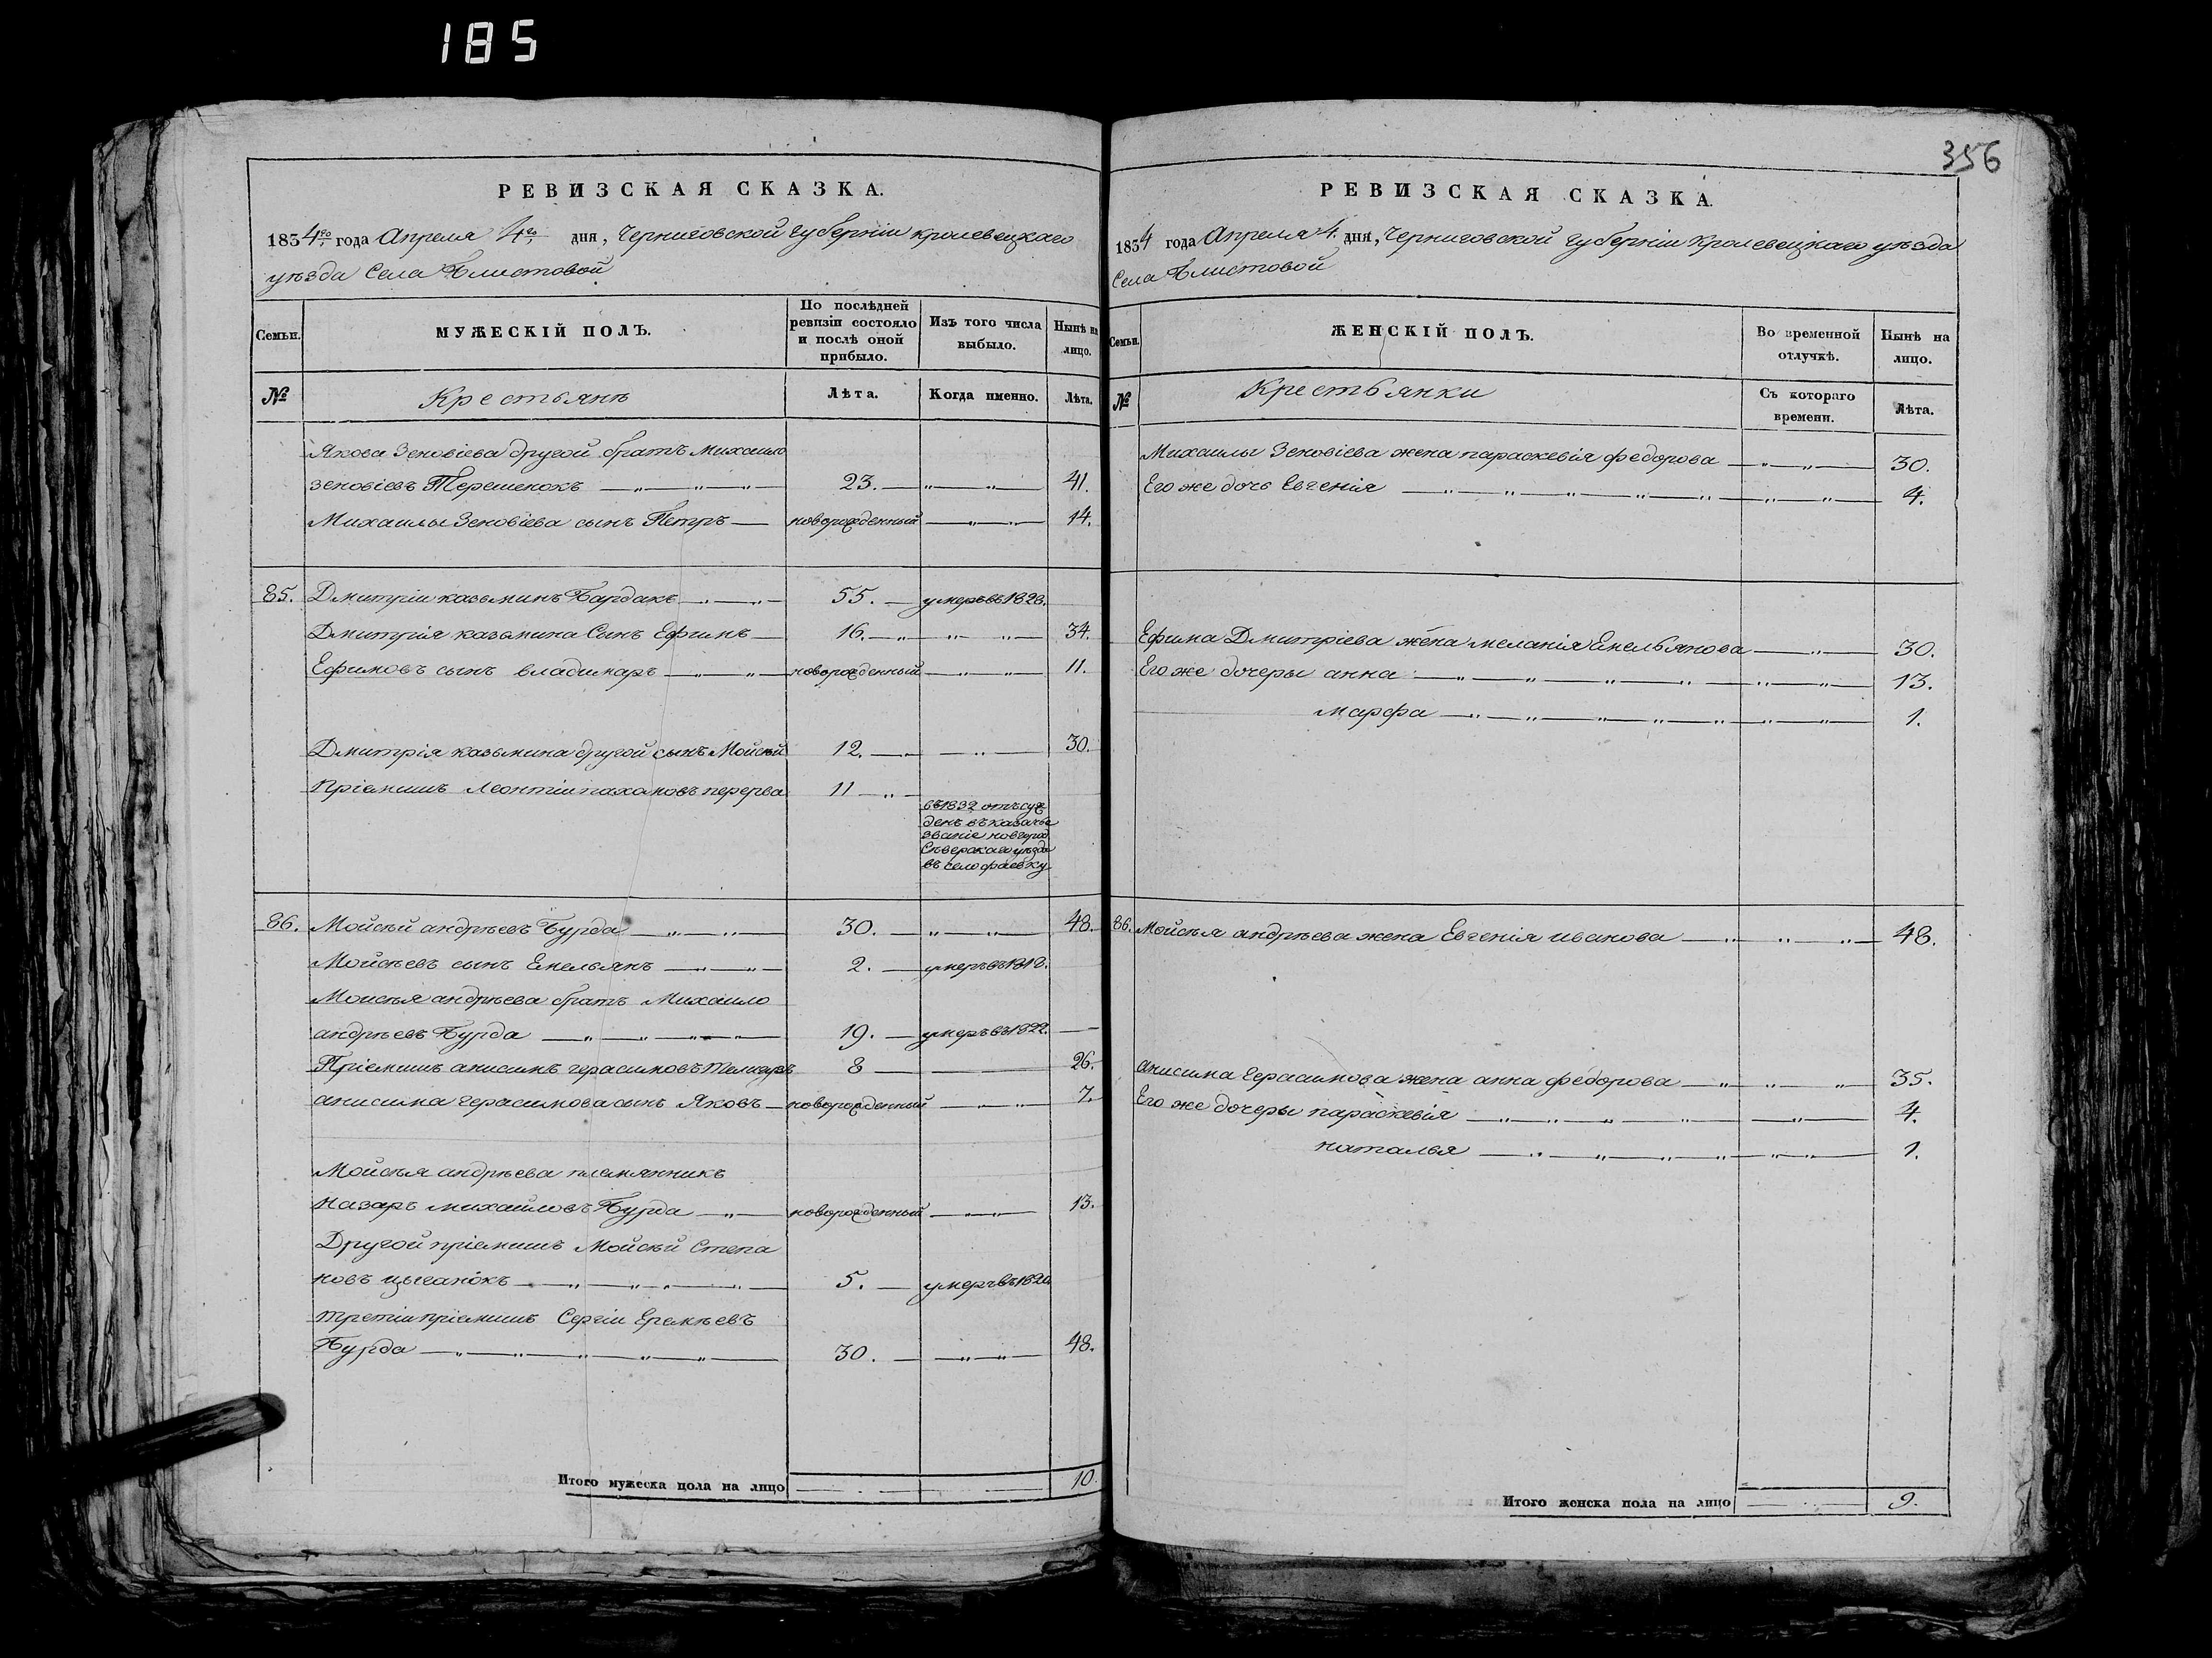 185
356
РЕВИЗСКАЯ СКАЗКА.
1834го года Апреля 4го дня, Черниговской губернiи кролевецкаго
уѣзда Села Блистовой
Семьи.
МУЖЕСКІЙ ПОЛЪ.
По послѣдней ревизіи состояло и послѣ оной прибыло.
Изъ того числа выбыло.
Нынѣ на лицо.
№
Крестьянъ
Лѣта.
Когда именно.
Лѣта.
Якова Зеновіева другой братъ Михаило
зеновіевъ Терешенокъ 23. 41.
Михаилы Зеновіева сынъ Петръ новорожденный 14.
85. Дмитріи казьминъ Бардакъ 55. умеръ въ 1828.
Дмитрія казьмина Сынъ Ефимъ 16. 34.
Ефимовъ сынъ владимаръ новорожденный 11.
Дмитрія казьмина другой сынъ Мойсѣй 12. 30.
Пріемишъ Леонтіи пахомовъ перерва 11
въ 1832 отъсуж
денъ въ казачье
званіе новгород
Сѣверскаго уѣзда
въ село фаевку
86. Мойсѣй андрѣевъ Бурда 30. 48.
Мойсѣевъ сынъ Емельянъ 2. умеръ въ 1818.
Моисѣя андрѣева братъ Михаило
андрѣевъ Бурда 19. умеръ въ 1822.
Пріемишъ анисимъ герасимовъ 8 26.
анисима герасимова сынъ Яковъ новорожденный 7.
Мойсѣя андрѣева племянникъ
Назаръ михайловъ Бурда новорожденный 13.
Другой пріемишъ Мойсѣй Степа
новъ цыганокъ 5. умеръ въ 1820.
третіи пріемишъ Сергіи Еремѣевъ
Бурда 30. 48.
Итого мужеска пола на лицо 10.
РЕВИЗСКАЯ СКАЗКА.
1834 года Апреля 4. дня, Черниговской губерніи Кролевецкаго уѣзда
Села Блистовой
Семьи.
ЖЕНСКІЙ ПОЛЪ.
Во временной отлучкѣ.
Нынѣ на лицо.
№
Крестьянки
Съ котораго времени.
Лѣта.
Михаилы Зеновіева жена параскевія федорова 30.
Его же дочь Евгенія 4.
Ефима Дмитріева жена меланія Емельянова 30.
Его же дочеры анна 13.
марфа 1.
86. Мойсѣя андрѣева жена Евгенія иванова 48.
анисима Герасимова жена анна федорова 35.
Его же дочеры параскевія 4.
наталья 1.
Итого женска пола на лицо 9.